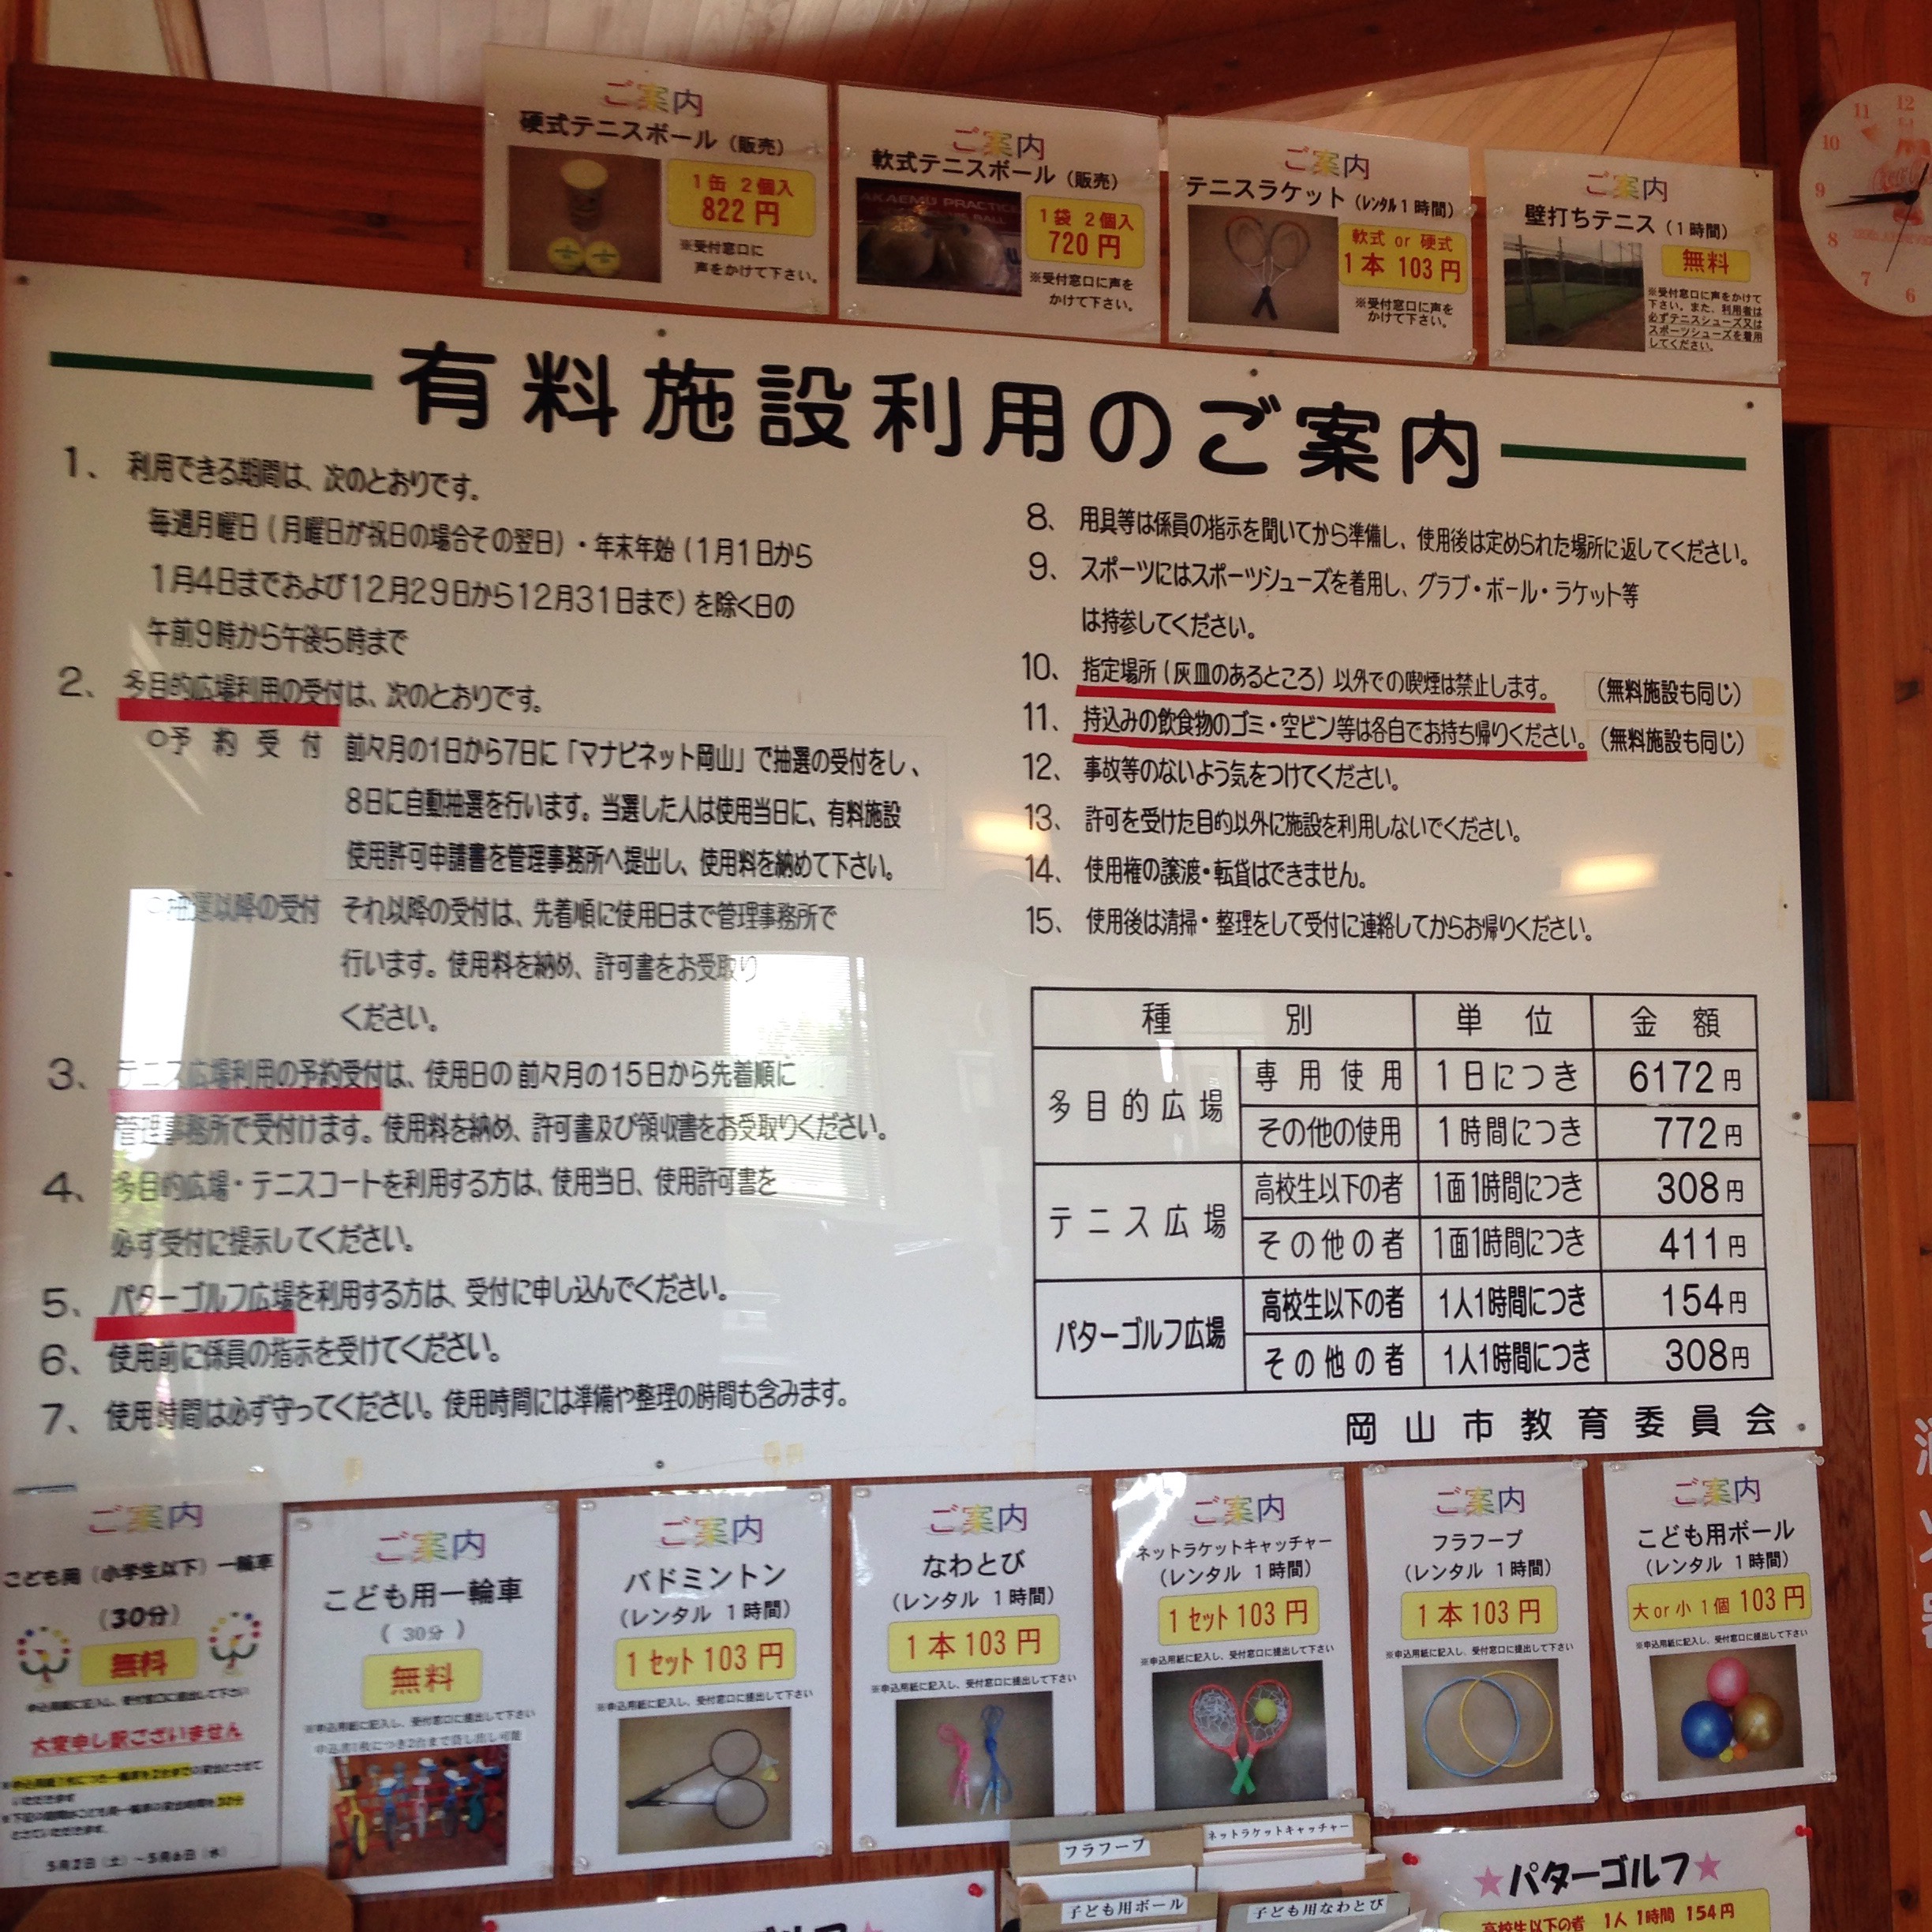 ご案内
硬式テニスボール（販売）
1缶 2個入
822円
※受付窓口に
声をかけて下さい。
ご案内
軟式テニスボール（販売）
AKAEMU PRACTICE
BALL
1袋 2個入
720円
※受付窓口に声を
かけて下さい。
ご案内
テニスラケット（ﾚﾝﾀﾙ1時間）
軟式 or 硬式
1本 103円
※受付窓口に声を
かけて下さい。
ご案内
壁打ちテニス（1時間）
無料
※受付窓口に声をかけて
下さい。また、利用者は
必ずテニスシューズ又は
スポーツシューズを着用
してください。
12
11
10
9
8
7
6
有料施設利用のご案内
1、利用できる期間は、次のとおりです。
毎週月曜日（月曜日が祝日の場合その翌日）・年末年始（1月1日から
1月4日までおよび12月29日から12月31日まで）を除く日の
午前9時から午後5時まで
2、多目的広場利用の受付は、次のとおりです。
○予約受付 前々月の1日から7日に「マナビネット岡山」で抽選の受付をし、
8日に自動抽選を行います。当選した人は使用当日に、有料施設
使用許可申請書を管理事務所へ提出し、使用料を納めて下さい。
○抽選以降の受付 それ以降の受付は、先着順に使用日まで管理事務所で
行います。使用料を納め、許可書をお受取り
ください。
3、テニス広場利用の予約受付は、使用日の前々月の15日から先着順に
管理事務所で受付けます。使用料を納め、許可書及び領収書をお受取りください。
4、多目的広場・テニスコートを利用する方は、使用当日、使用許可書を
必ず受付に提示してください。
5、パターゴルフ広場を利用する方は、受付に申し込んでください。
6、使用前に係員の指示を受けてください。
7、使用時間は必ず守ってください。使用時間には準備や整理の時間も含みます。
8、用具等は係員の指示を聞いてから準備し、使用後は定められた場所に返してください。
9、スポーツにはスポーツシューズを着用し、グラブ・ボール・ラケット等
は持参してください。
10、指定場所（灰皿のあるところ）以外での喫煙は禁止します。（無料施設も同じ）
11、持込みの飲食物のゴミ・空ビン等は各自でお持ち帰りください。（無料施設も同じ）
12、事故等のないよう気をつけてください。
13、許可を受けた目的以外に施設を利用しないでください。
14、使用権の譲渡・転貸はできません。
15、使用後は清掃・整理をして受付に連絡してからお帰りください。
種別 単位 金額
多目的広場 専用使用 1日につき 6172円
その他の使用 1時間につき 772円
テニス広場 高校生以下の者 1面1時間につき 308円
その他の者 1面1時間につき 411円
パターゴルフ広場 高校生以下の者 1人1時間につき 154円
その他の者 1人1時間につき 308円
岡山市教育委員会
ご案内
こども用（小学生以下）一輪車
（30分）
無料
申込用紙に記入し、受付窓口に提出して下さい
大変申し訳ございません
5月2日（土）～5月6日（水）
ご案内
こども用一輪車
（30分）
無料
※申込用紙に記入し、受付窓口に提出して下さい
申込書1枚につき2台まで貸し出し可能
ご案内
バドミントン
（レンタル 1時間）
1セット103円
※申込用紙に記入し、受付窓口に提出して下さい
ご案内
なわとび
（レンタル 1時間）
1本103円
※申込用紙に記入し、受付窓口に提出して下さい
ご案内
ネットラケットキャッチャー
（レンタル 1時間）
1セット103円
※申込用紙に記入し、受付窓口に提出して下さい
ご案内
フラフープ
（レンタル 1時間）
1本103円
※申込用紙に記入し、受付窓口に提出して下さい
ご案内
こども用ボール
（レンタル 1時間）
大or小 1個 103円
※申込用紙に記入し、受付窓口に提出して下さい
フラフープ
ネットラケットキャッチャー
子ども用ボール
子ども用なわとび
★パターゴルフ★
高校生以下の者 1人 1時間 154円